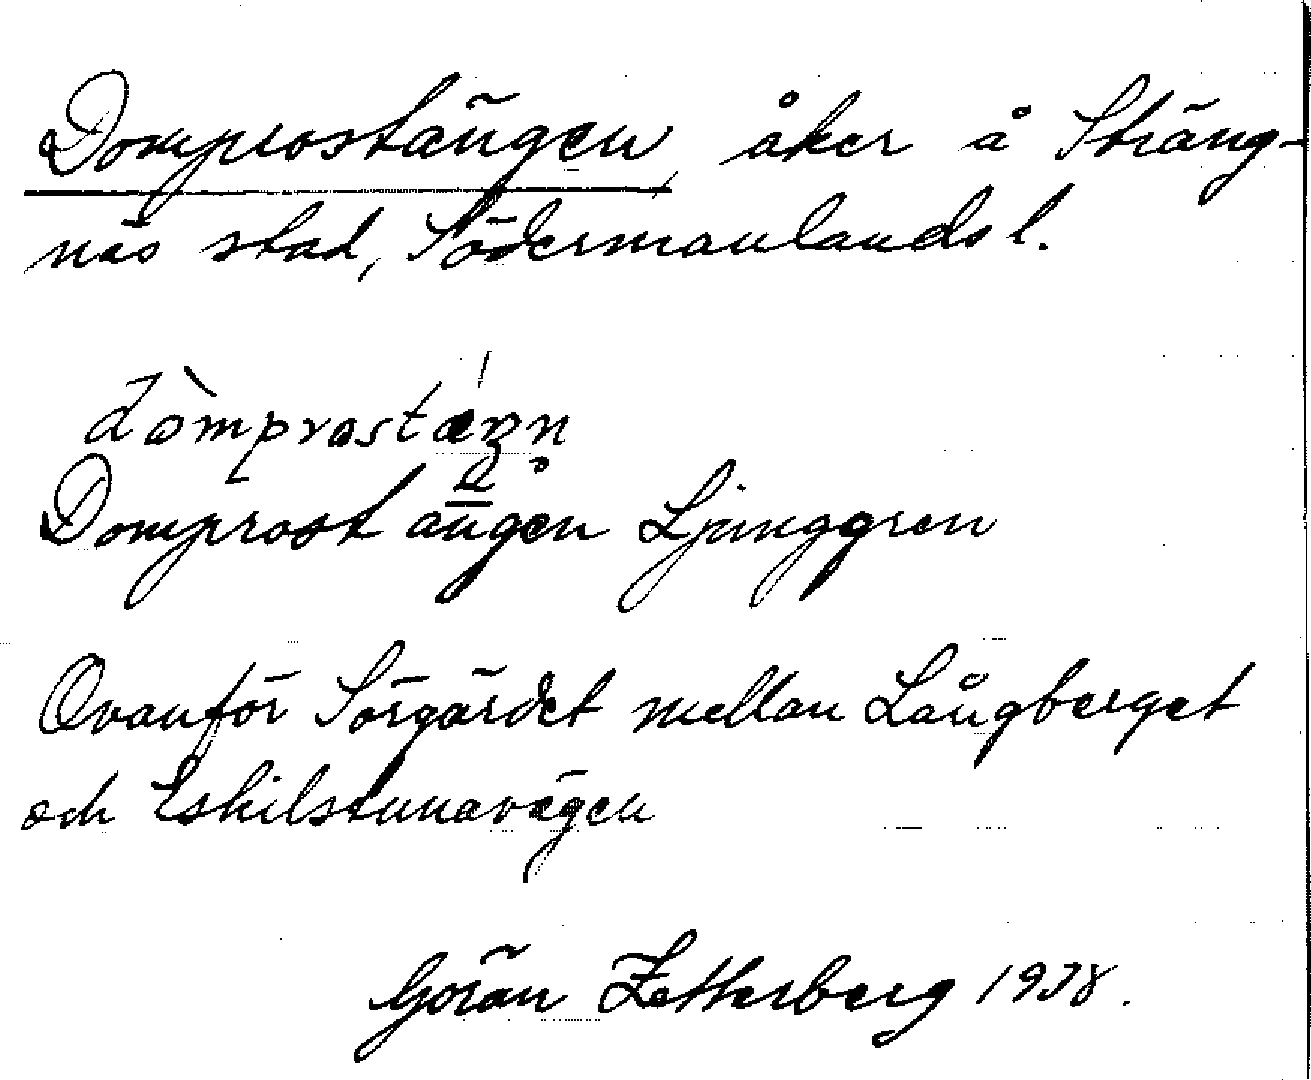 Domprostängen, åker å Sträng-
näs stad, Södermanlands l.
dòmprostæ´ŋn
Domprost ängen Ljunggren
Ovanför Sörgärdet mellan Långberget
och Eskilstunavägen
Göran Zetterberg 1938.